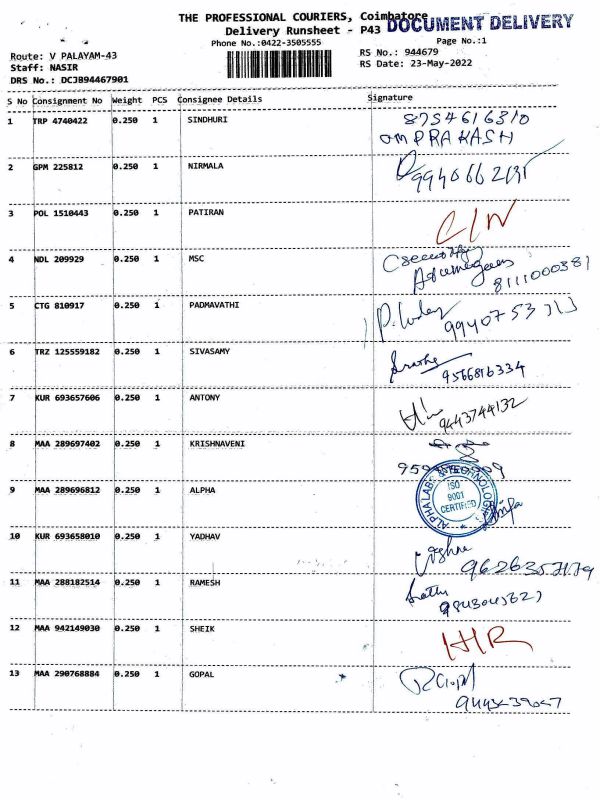 THE PROFESSIONAL COURIERS, Coimbatore
DOCUMENT DELIVERY
Delivery Runsheet - P43
Phone No.:0422-3505555
Page No.:1
Route: V PALAYAM-43
RS No.: 944679
Staff: NASIR
RS Date: 23-May-2022
DRS No.: DCJB94467901
S No Consignment No Weight PCS Consignee Details Signature
1 TRP 4740422 0.250 1 SINDHURI 8754616310
OM PRAKASH
2 GPM 225812 0.250 1 NIRMALA
3 POL 1510443 0.250 1 PATIRAN C/N
4 NDL 209929 0.250 1 MSC
8111000381
5 CTG 810917 0.250 1 PADMAVATHI
6 TRZ 125559182 0.250 1 SIVASAMY
9566816334
7 KUR 693657606 0.250 1 ANTONY
9443744132
8 MAA 289697402 0.250 1 KRISHNAVENI
9 MAA 289696812 0.250 1 ALPHA
ISO
9001
CERTIFIED
10 KUR 693658010 0.250 1 YADHAV
11 MAA 288182514 0.250 1 RAMESH
12 MAA 942149030 0.250 1 SHEIK
13 MAA 290768884 0.250 1 GOPAL